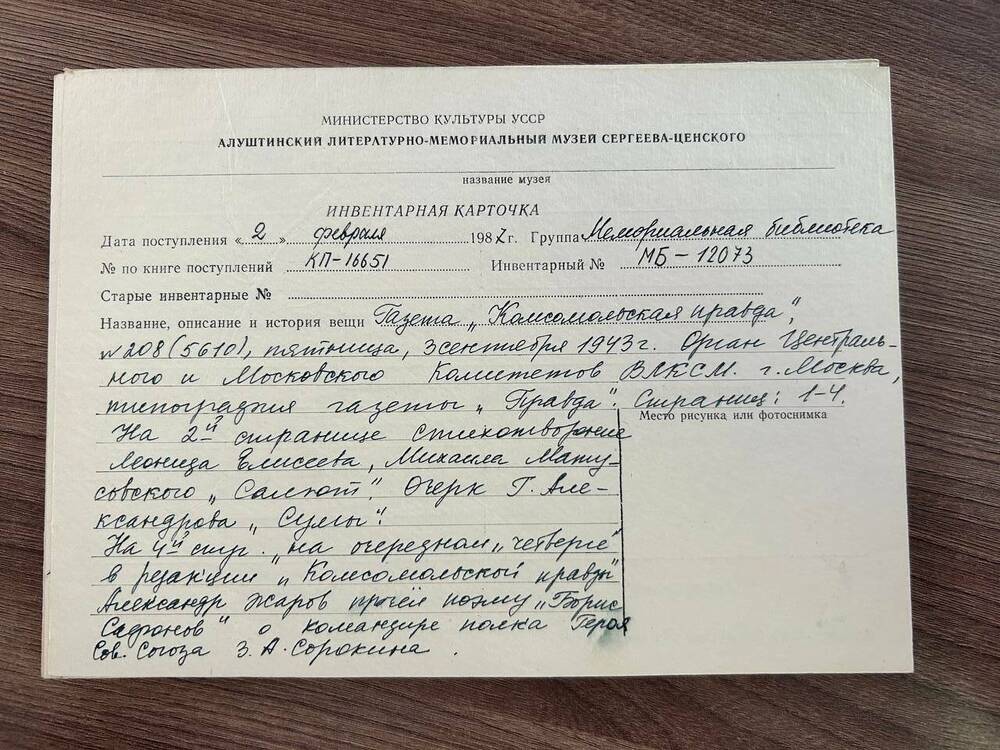 МИНИСТЕРСТВО КУЛЬТУРЫ УССР
АЛУШТИНСКИЙ ЛИТЕРАТУРНО-МЕМОРИАЛЬНЫЙ МУЗЕЙ СЕРГЕЕВА-ЦЕНСКОГО
название музея
ИНВЕНТАРНАЯ КАРТОЧКА
Дата поступления «2» февраля 1987 г. Группа Мемориальная библиотека
№ по книге поступлений КП-16651 Инвентарный № МБ-12073
Старые инвентарные №
Название, описание и история вещи Газета „Комсомольская правда",
№208 (5610), пятница, 3 сентября 1943 г. Орган Централь-
ного и Московского Комитетов ВЛКСМ. г. Москва,
типография газеты „Правда". Страниц: 1-4.
Место рисунка или фотоснимка
На 2й странице стихотворение
Леонида Елисеева, Михаила Мату-
совского „Салют". Очерк Г. Але-
ксандрова „Сумы".
На 4й стр. „на очередном „четверге"
в редакции „Комсомольской правды"
Александр Жаров прочёл поэму „Борис
Сафонов" о командире полка Героя
Сов. Союза З. А. Сорокина.